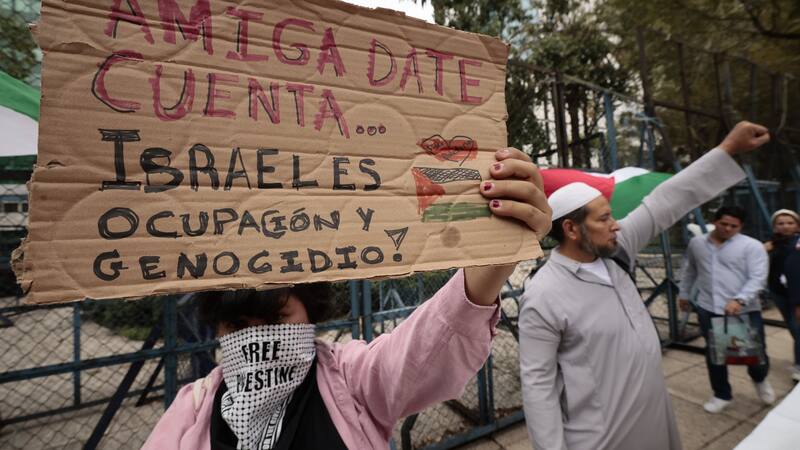 AMIGA DATE
CUENTA...
ISRAEL ES
OCUPACIÓN Y
GENOCIDIO!
FREE
PALESTINE